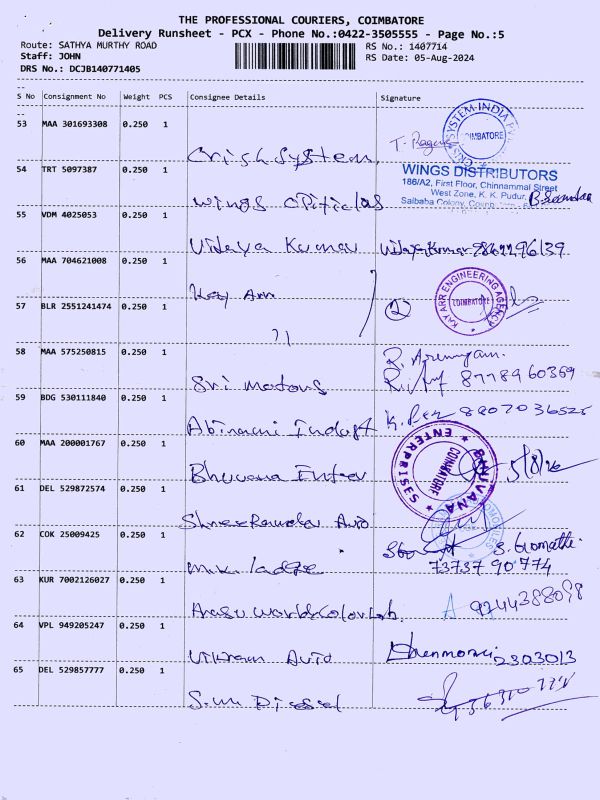 THE PROFESSIONAL COURIERS, COIMBATORE
Delivery Runsheet - PCX - Phone No.:0422-3505555 - Page No.:5
Route: SATHYA MURTHY ROAD
RS No.: 1407714
Staff: JOHN
RS Date: 05-Aug-2024
DRS No.: DCJB140771405
S No Consignment No Weight PCS Consignee Details Signature
53 MAA 301693308 0.250 1
System
54 TRT 5097387 0.250 1
WINGS DISTRIBUTORS
186/A2, First Floor, Chinnammal Street
West Zone, K. K. Pudur,
Saibaba Colony,
Wings
55 VDM 4025053 0.250 1
Vidaya Kumar
56 MAA 704621008 0.250 1
KAY ARR ENGINEERING AGENCY
COIMBATORE
Kay Arr
57 BLR 2551241474 0.250 1
2
58 MAA 575250815 0.250 1
R. Arumugam.
8778960369
Sri Motors
59 BDG 530111840 0.250 1
Abirami
60 MAA 200001767 0.250 1
BHUVANA ENTERPRISES
COIMBATORE
Bhuvana Enter
5/8/24
61 DEL 529872574 0.250 1
Auto
62 COK 25009425 0.250 1
S. Gomathi
73737 90774
M.K. Lodge
63 KUR 7002126027 0.250 1
Arasu World Color Lab.
64 VPL 949205247 0.250 1
Vikram Auto
2303013
65 DEL 529857777 0.250 1
S.M. Diesel